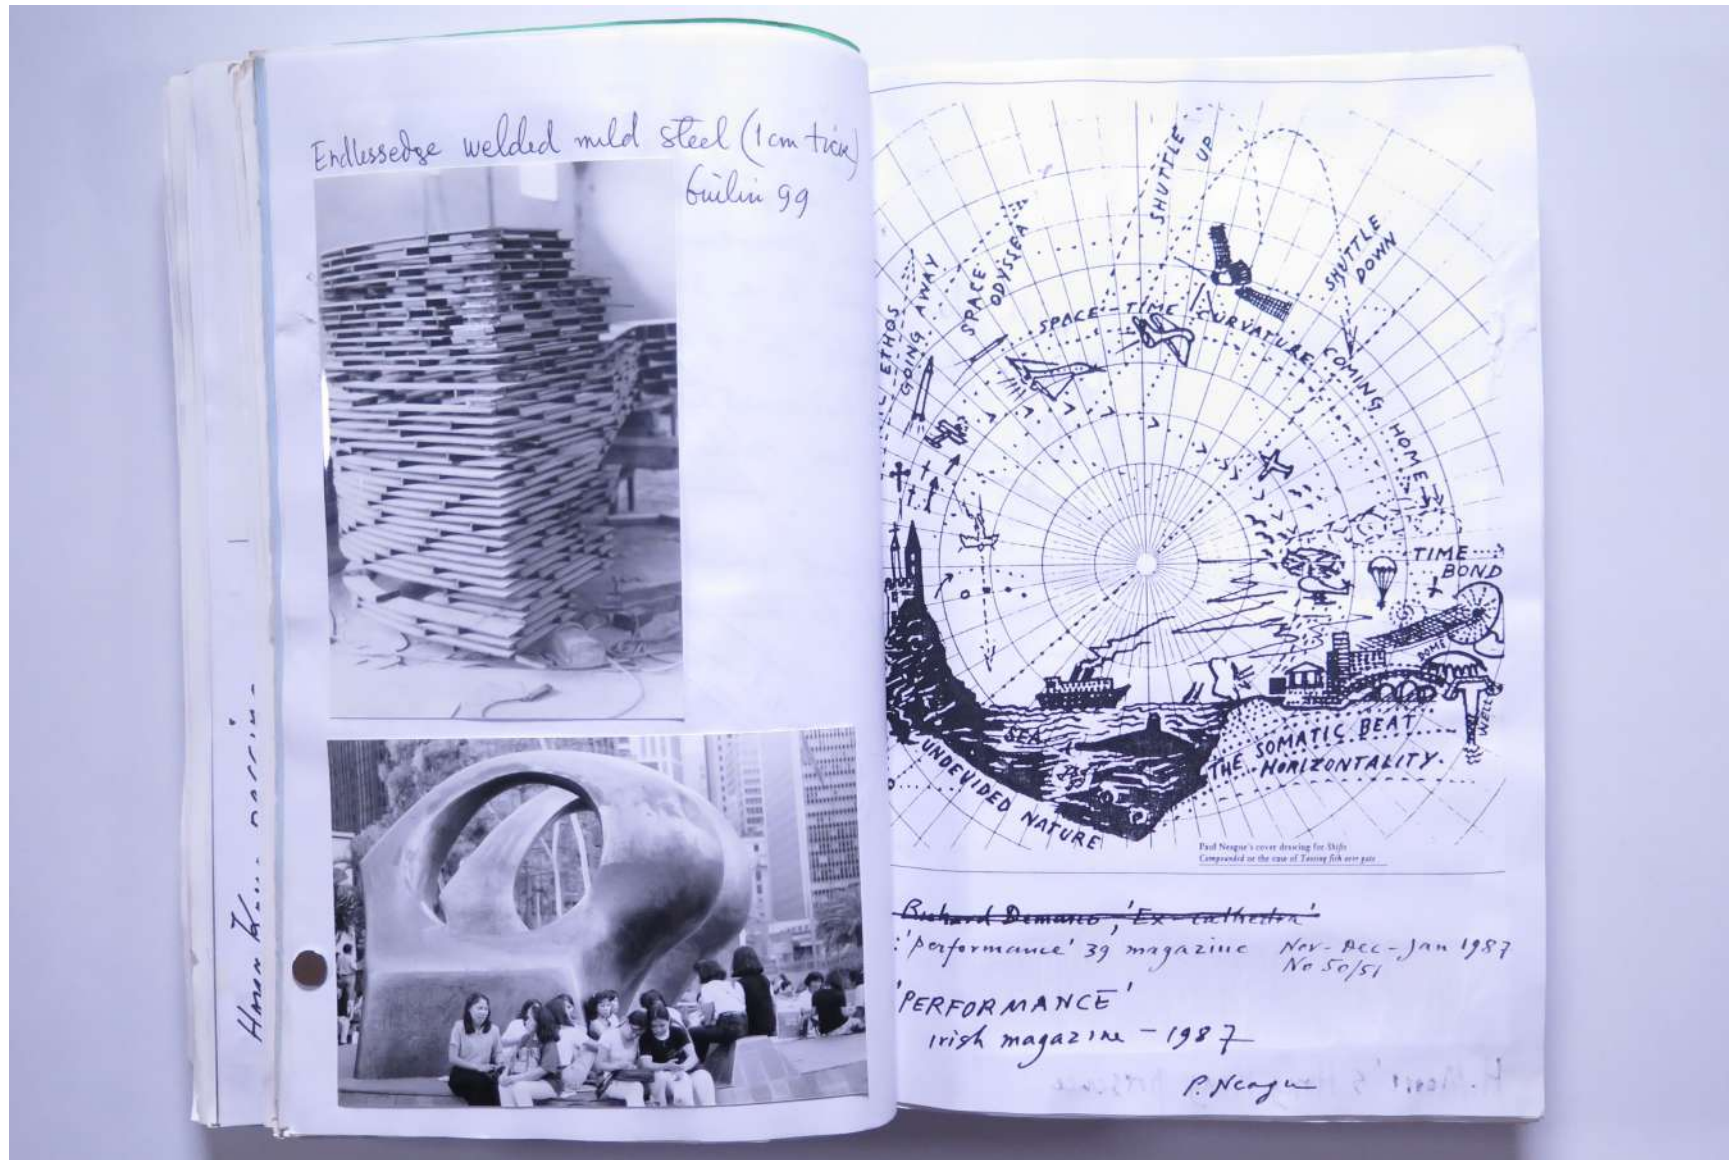 Endlessedge welded mild steel (1cm tick)
Guilin 99
SHUTTLE
UP
SHUTTLE
DOWN
SPACE
ODYSSEA
GOING AWAY
ETHOS
SPACE-TIME CURVATURE
COMING HOME
TIME
BOND
DOME
WELL
SEA
THE SOMATIC BEAT
HORIZONTALITY.
UNDEVIDED NATURE
Paul Neagu's cover drawing for Shifts
Compounded or the case of Tossing fish over gate
Richard Demarco, 'Ex-cathedra'
: 'performance' 39 magazine Nov-Dec-Jan 1987
No 50/51
'PERFORMANCE'
irish magazine - 1987
P. Neagu